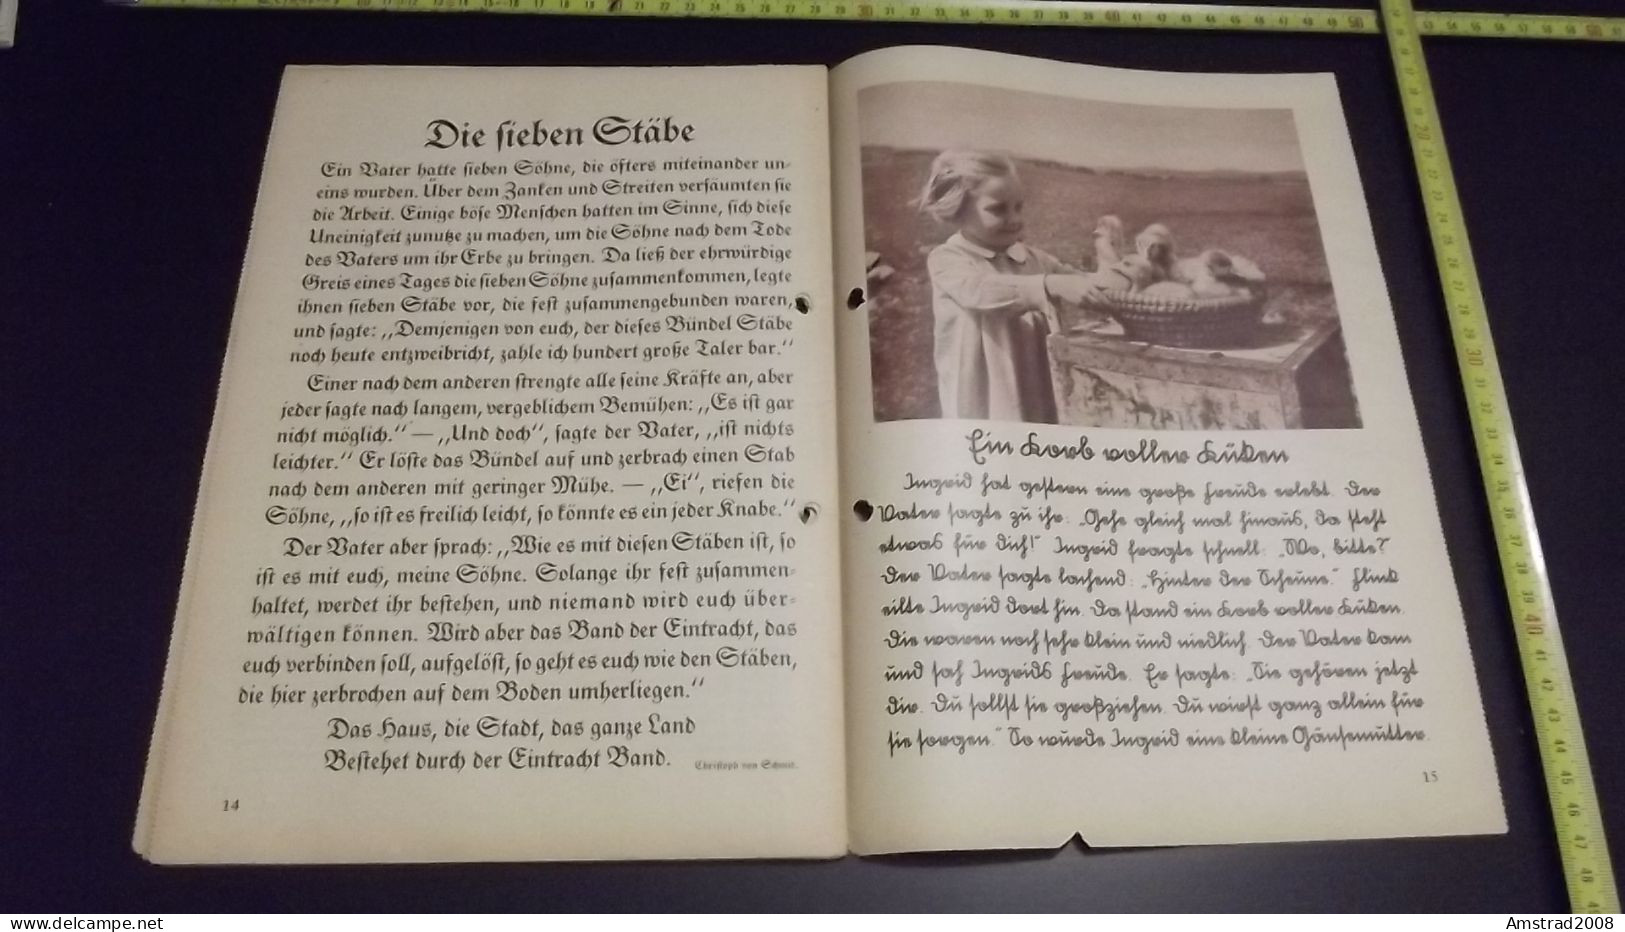 Die sieben Stäbe
Ein Vater hatte sieben Söhne, die öfters miteinander un-
eins wurden. Über dem Zanken und Streiten versäumten sie
die Arbeit. Einige böse Menschen hatten im Sinne, sich diese
Uneinigkeit zunutze zu machen, um die Söhne nach dem Tode
des Vaters um ihr Erbe zu bringen. Da ließ der ehrwürdige
Greis eines Tages die sieben Söhne zusammenkommen, legte
ihnen sieben Stäbe vor, die fest zusammengebunden waren,
und sagte: „Demjenigen von euch, der dieses Bündel Stäbe
noch heute entzweibricht, zahle ich hundert große Taler bar.“
Einer nach dem anderen strengte alle seine Kräfte an, aber
jeder sagte nach langem, vergeblichem Bemühen: „Es ist gar
nicht möglich.“ — „Und doch“, sagte der Vater, „ist nichts
leichter.“ Er löste das Bündel auf und zerbrach einen Stab
nach dem anderen mit geringer Mühe. — „Ei“, riefen die
Söhne, „so ist es freilich leicht, so könnte es ein jeder Knabe.“
Der Vater aber sprach: „Wie es mit diesen Stäben ist, so
ist es mit euch, meine Söhne. Solange ihr fest zusammen-
haltet, werdet ihr bestehen, und niemand wird euch über-
wältigen können. Wird aber das Band der Eintracht, das
euch verbinden soll, aufgelöst, so geht es euch wie den Stäben,
die hier zerbrochen auf dem Boden umherliegen.“
Das Haus, die Stadt, das ganze Land
Bestehet durch der Eintracht Band.
Christoph von Schmid.
14
Ein Korb voller Küken
Ingrid hat gestern eine große Freude erlebt. Der
Vater sagte zu ihr: „Gehe gleich mal hinaus, da steht
etwas für dich!“ Ingrid fragte schnell: „Wo, bitte?“
Der Vater sagte lachend: „Hinter der Scheune.“ Flink
eilte Ingrid dort hin. Da stand ein Korb voller Küken.
Die waren noch sehr klein und niedlich. Der Vater kam
und sah Ingrids Freude. Er sagte: „Sie gehören jetzt
dir. Du sollst sie großziehen. Du wirst ganz allein für
sie sorgen.“ So wurde Ingrid eine kleine Gänsemutter.
15
Amstrad2008
www.delcampe.net